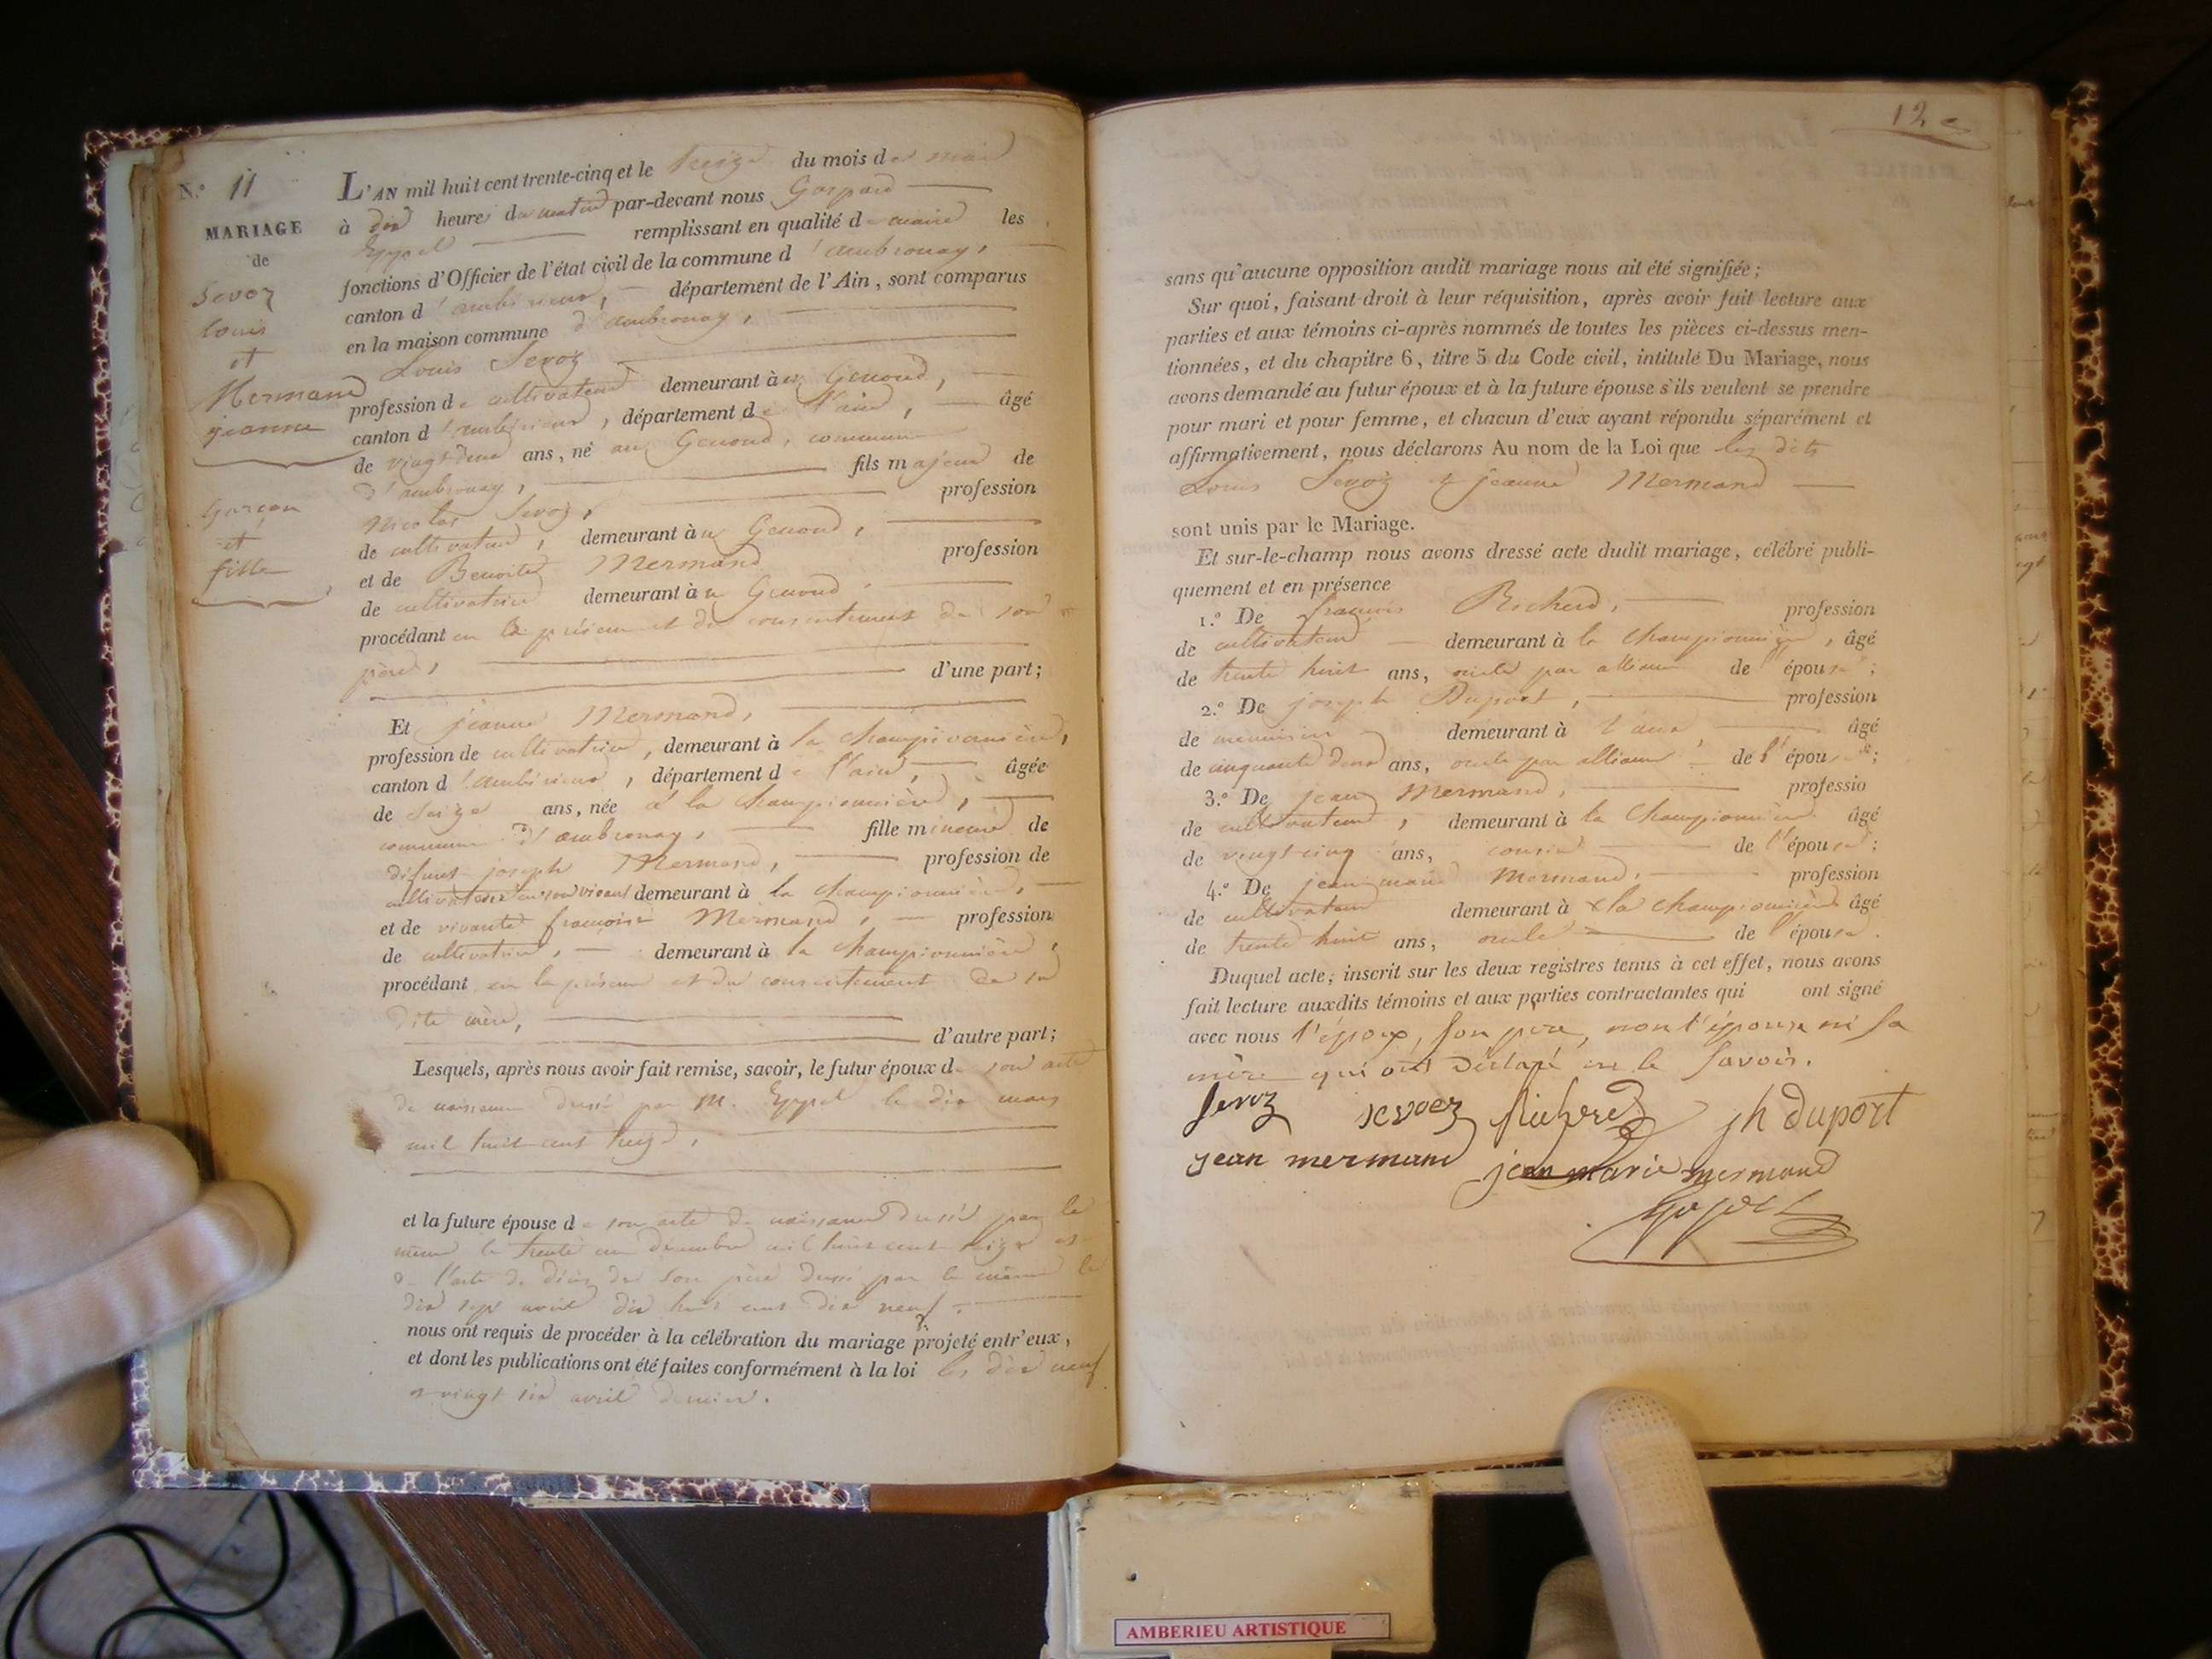 N.º 11
MARIAGE
de
Sevoz
Louis
et
Mermand
jeanne
Garçon
et
fille
L'AN mil huit cent trente-cinq et le treize du mois de mai
à dix heures du matin par-devant nous Gaspard
Eyppel remplissant en qualité de maire les
fonctions d'Officier de l'état civil de la commune d'ambronay,
canton d'ambérieux, département de l'Ain, sont comparus
en la maison commune d'ambronay,
Louis Sevoz
profession de cultivateur demeurant à Genoud,
canton d'ambérieux, département de l'ain, âgé
de vingt deux ans, né au Genoud, commune
d'ambronay, fils majeur de
Nicolas Sevoz, profession
de cultivateur, demeurant au Genoud,
et de Benoite Mermand profession
de cultivatrice demeurant au Genoud
procédant en la présence et du consentement de son
père, d'une part;
Et jeanne Mermand,
profession de cultivatrice, demeurant à la Championnière,
canton d'ambérieux, département de l'ain, âgée
de seize ans, née à la Championnière,
commune d'ambronay, fille mineure de
défunt joseph Mermand, profession de
cultivateur en son vivant demeurant à la Championnière,
et de vivante françoise Mermand, profession
de cultivatrice, demeurant à la Championnière,
procédant en la présence et du consentement de sa
dite mère,
d'autre part;
Lesquels, après nous avoir fait remise, savoir, le futur époux de son acte
de naissance dressé par M. Eyppel le dix mars
mil huit cent treize,
et la future épouse de son acte de naissance dressé par le
même le trente un décembre mil huit cent et
l'acte de décès de son père dressé par le même le
dix sept avril dix huit cent dix neuf.
nous ont requis de procéder à la célébration du mariage projeté entr'eux,
et dont les publications ont été faites conformément à la loi les dix neuf
et vingt six avril dernier.
12
sans qu'aucune opposition audit mariage nous ait été signifiée;
Sur quoi, faisant droit à leur réquisition, après avoir fait lecture aux
parties et aux témoins ci-après nommés de toutes les pièces ci-dessus men-
tionnées, et du chapitre 6, titre 5 du Code civil, intitulé Du Mariage, nous
avons demandé au futur époux et à la future épouse s'ils veulent se prendre
pour mari et pour femme, et chacun d'eux ayant répondu séparément et
affirmativement, nous déclarons Au nom de la Loi que les dits
Louis Sevoz et jeanne Mermand
sont unis par le Mariage.
Et sur-le-champ nous avons dressé acte dudit mariage, célébré publi-
quement et en présence
1.º De françois Richerd, profession
de cultivateur demeurant à la Championnière, âgé
de trente huit ans, oncle par alliance de l'épouse;
2.º De joseph Duport, profession
de menuisier demeurant à âgé
de cinquante deux ans, oncle par alliance de l'épouse;
3.º De jean Mermand, professio
de cultivateur, demeurant à la Championnière âgé
de vingt cinq ans, cousin de l'épouse;
4.º De jean marie Mermand, profession
de cultivateur demeurant à la Championnière âgé
de trente huit ans, oncle de l'épouse.
Duquel acte, inscrit sur les deux registres tenus à cet effet, nous avons
fait lecture auxdits témoins et aux parties contractantes qui ont signé
avec nous l'époux, son père, non l'épouse ni sa
mère qui ont déclaré ne le savoir.
Sevoz sevoz Richerd jh duport
jean mermand jean marie mermand
Eyppel
AMBERIEU ARTISTIQUE